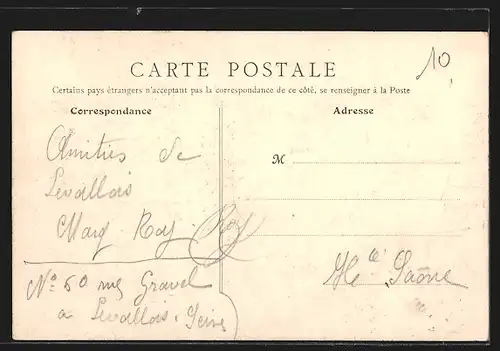 10
CARTE POSTALE
Certains pays étrangers n'acceptant pas la correspondance de ce côté, se renseigner à la Poste
Correspondance
Adresse
Amitiés de
Levallois
Marg Roy
M
Hte Saône
No 50 rue Gravel
a Levallois. Seine